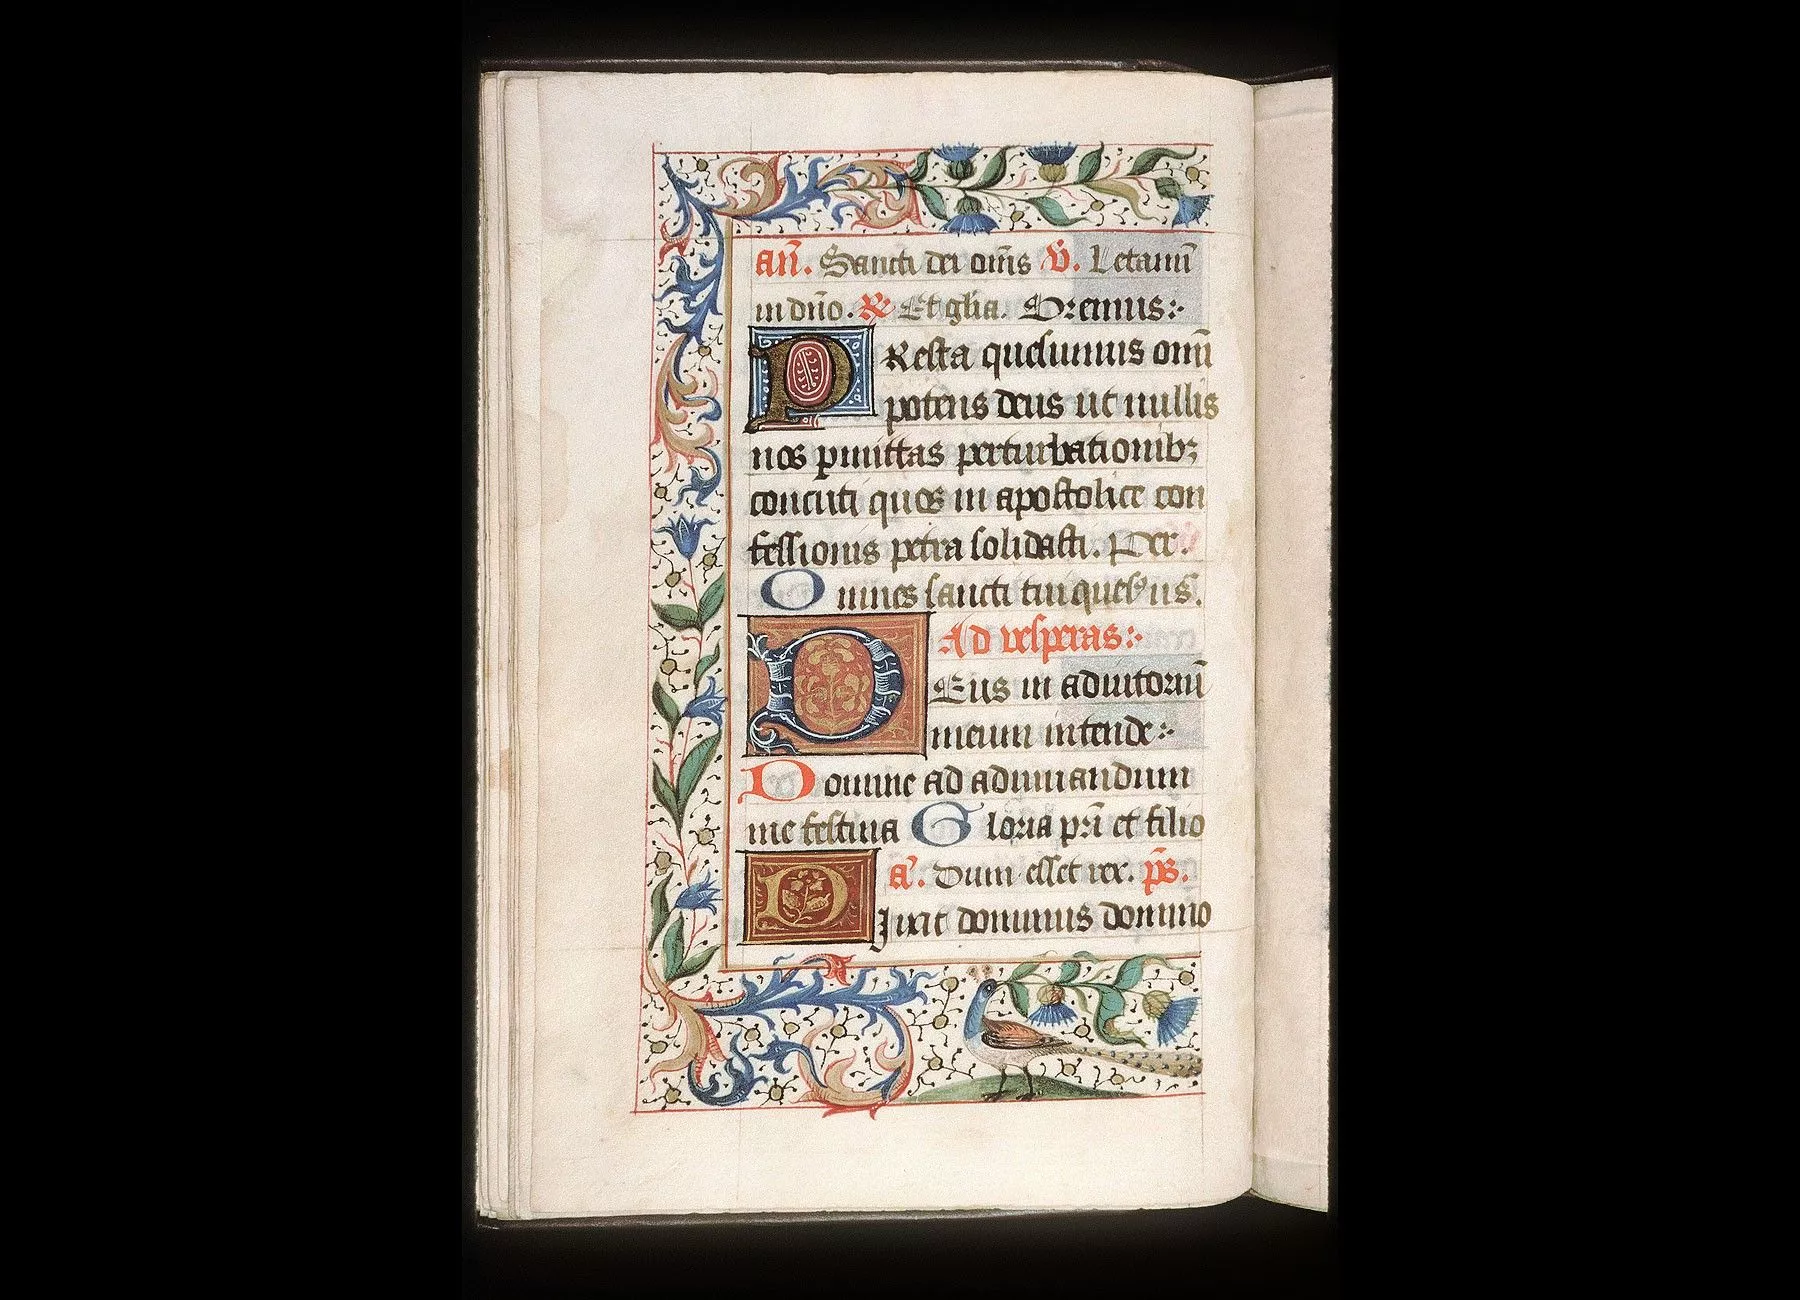 añ. Sancti dei oms̄ v̄. Letamī
in dño. ℟ Et glīa. Oremus:·
PResta quesumus omī
potens deus ut nullis
nos pmittas perturbationibꝫ
concuti quos in apostolice con
fessionis petra solidasti. Per.
Omnes sancti tui quesūs.
Ad vesperas:·
DEus in adiutoriū
meum intende:·
Domine ad adiuuandum
me festina Gloria pr̄i et filio
a᷒. Dum esset rex. p̄s.
Dixit dominus domino